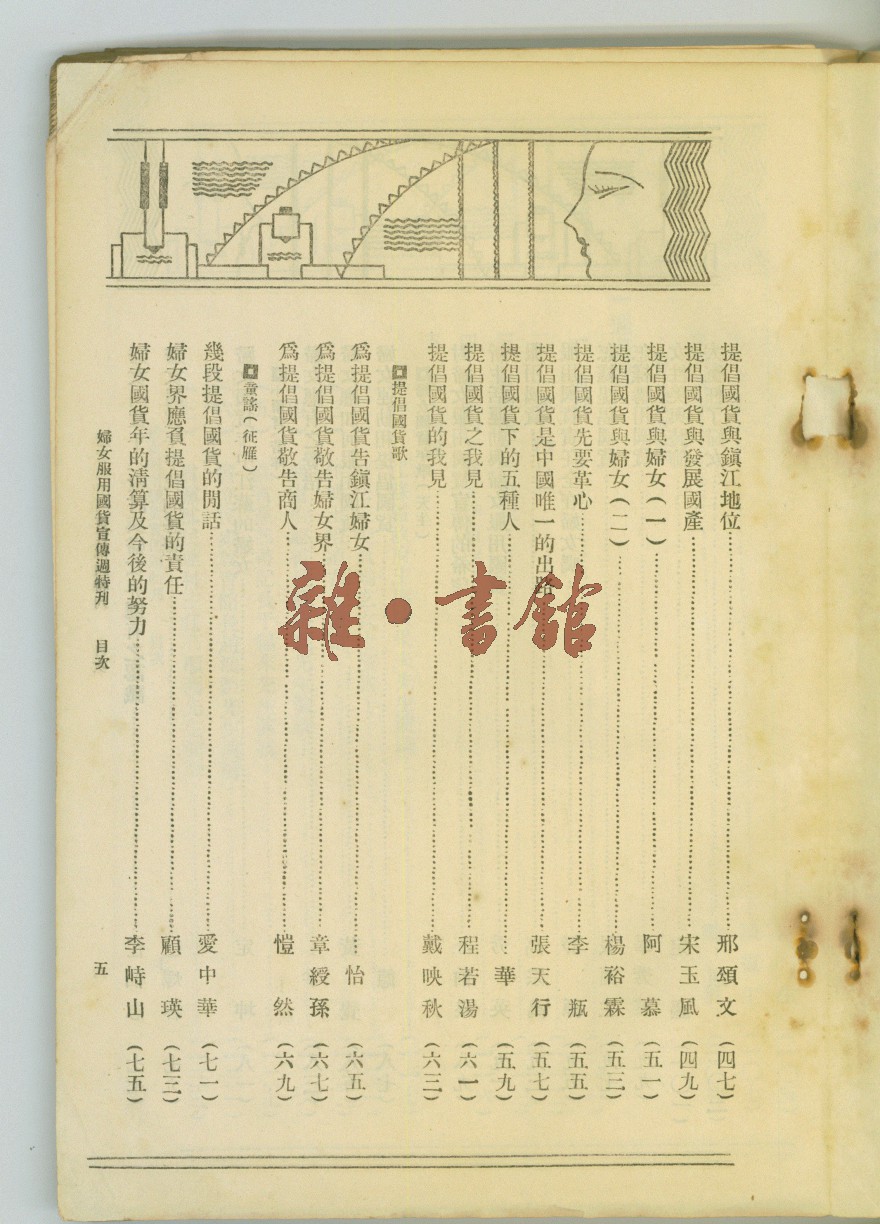 提倡國貨與鎭江地位……邢頌文(四七)
提倡國貨與發展國產……宋玉風(四九)
提倡國貨與婦女(一)……阿慕(五一)
提倡國貨與婦女(二)……楊裕霖(五三)
提倡國貨先要革心……李瓶(五五)
提倡國貨是中國唯一的出路……張天行(五七)
提倡國貨下的五種人……華(五九)
提倡國貨之我見……程若湯(六一)
提倡國貨的我見……戴映秋(六三)
提倡國貨歌
爲提倡國貨告鎭江婦女……怡(六五)
爲提倡國貨敬告婦女界……章綬孫(六七)
爲提倡國貨敬告商人……愷然(六九)
童謠(征雁)
幾段提倡國貨的閒話……愛中華(七一)
婦女界應負提倡國貨的責任……顧瑛(七三)
婦女國貨年的淸算及今後的努力……李峙山(七五)
婦女服用國貨宣傳週特刊 目次
五
雜・書館